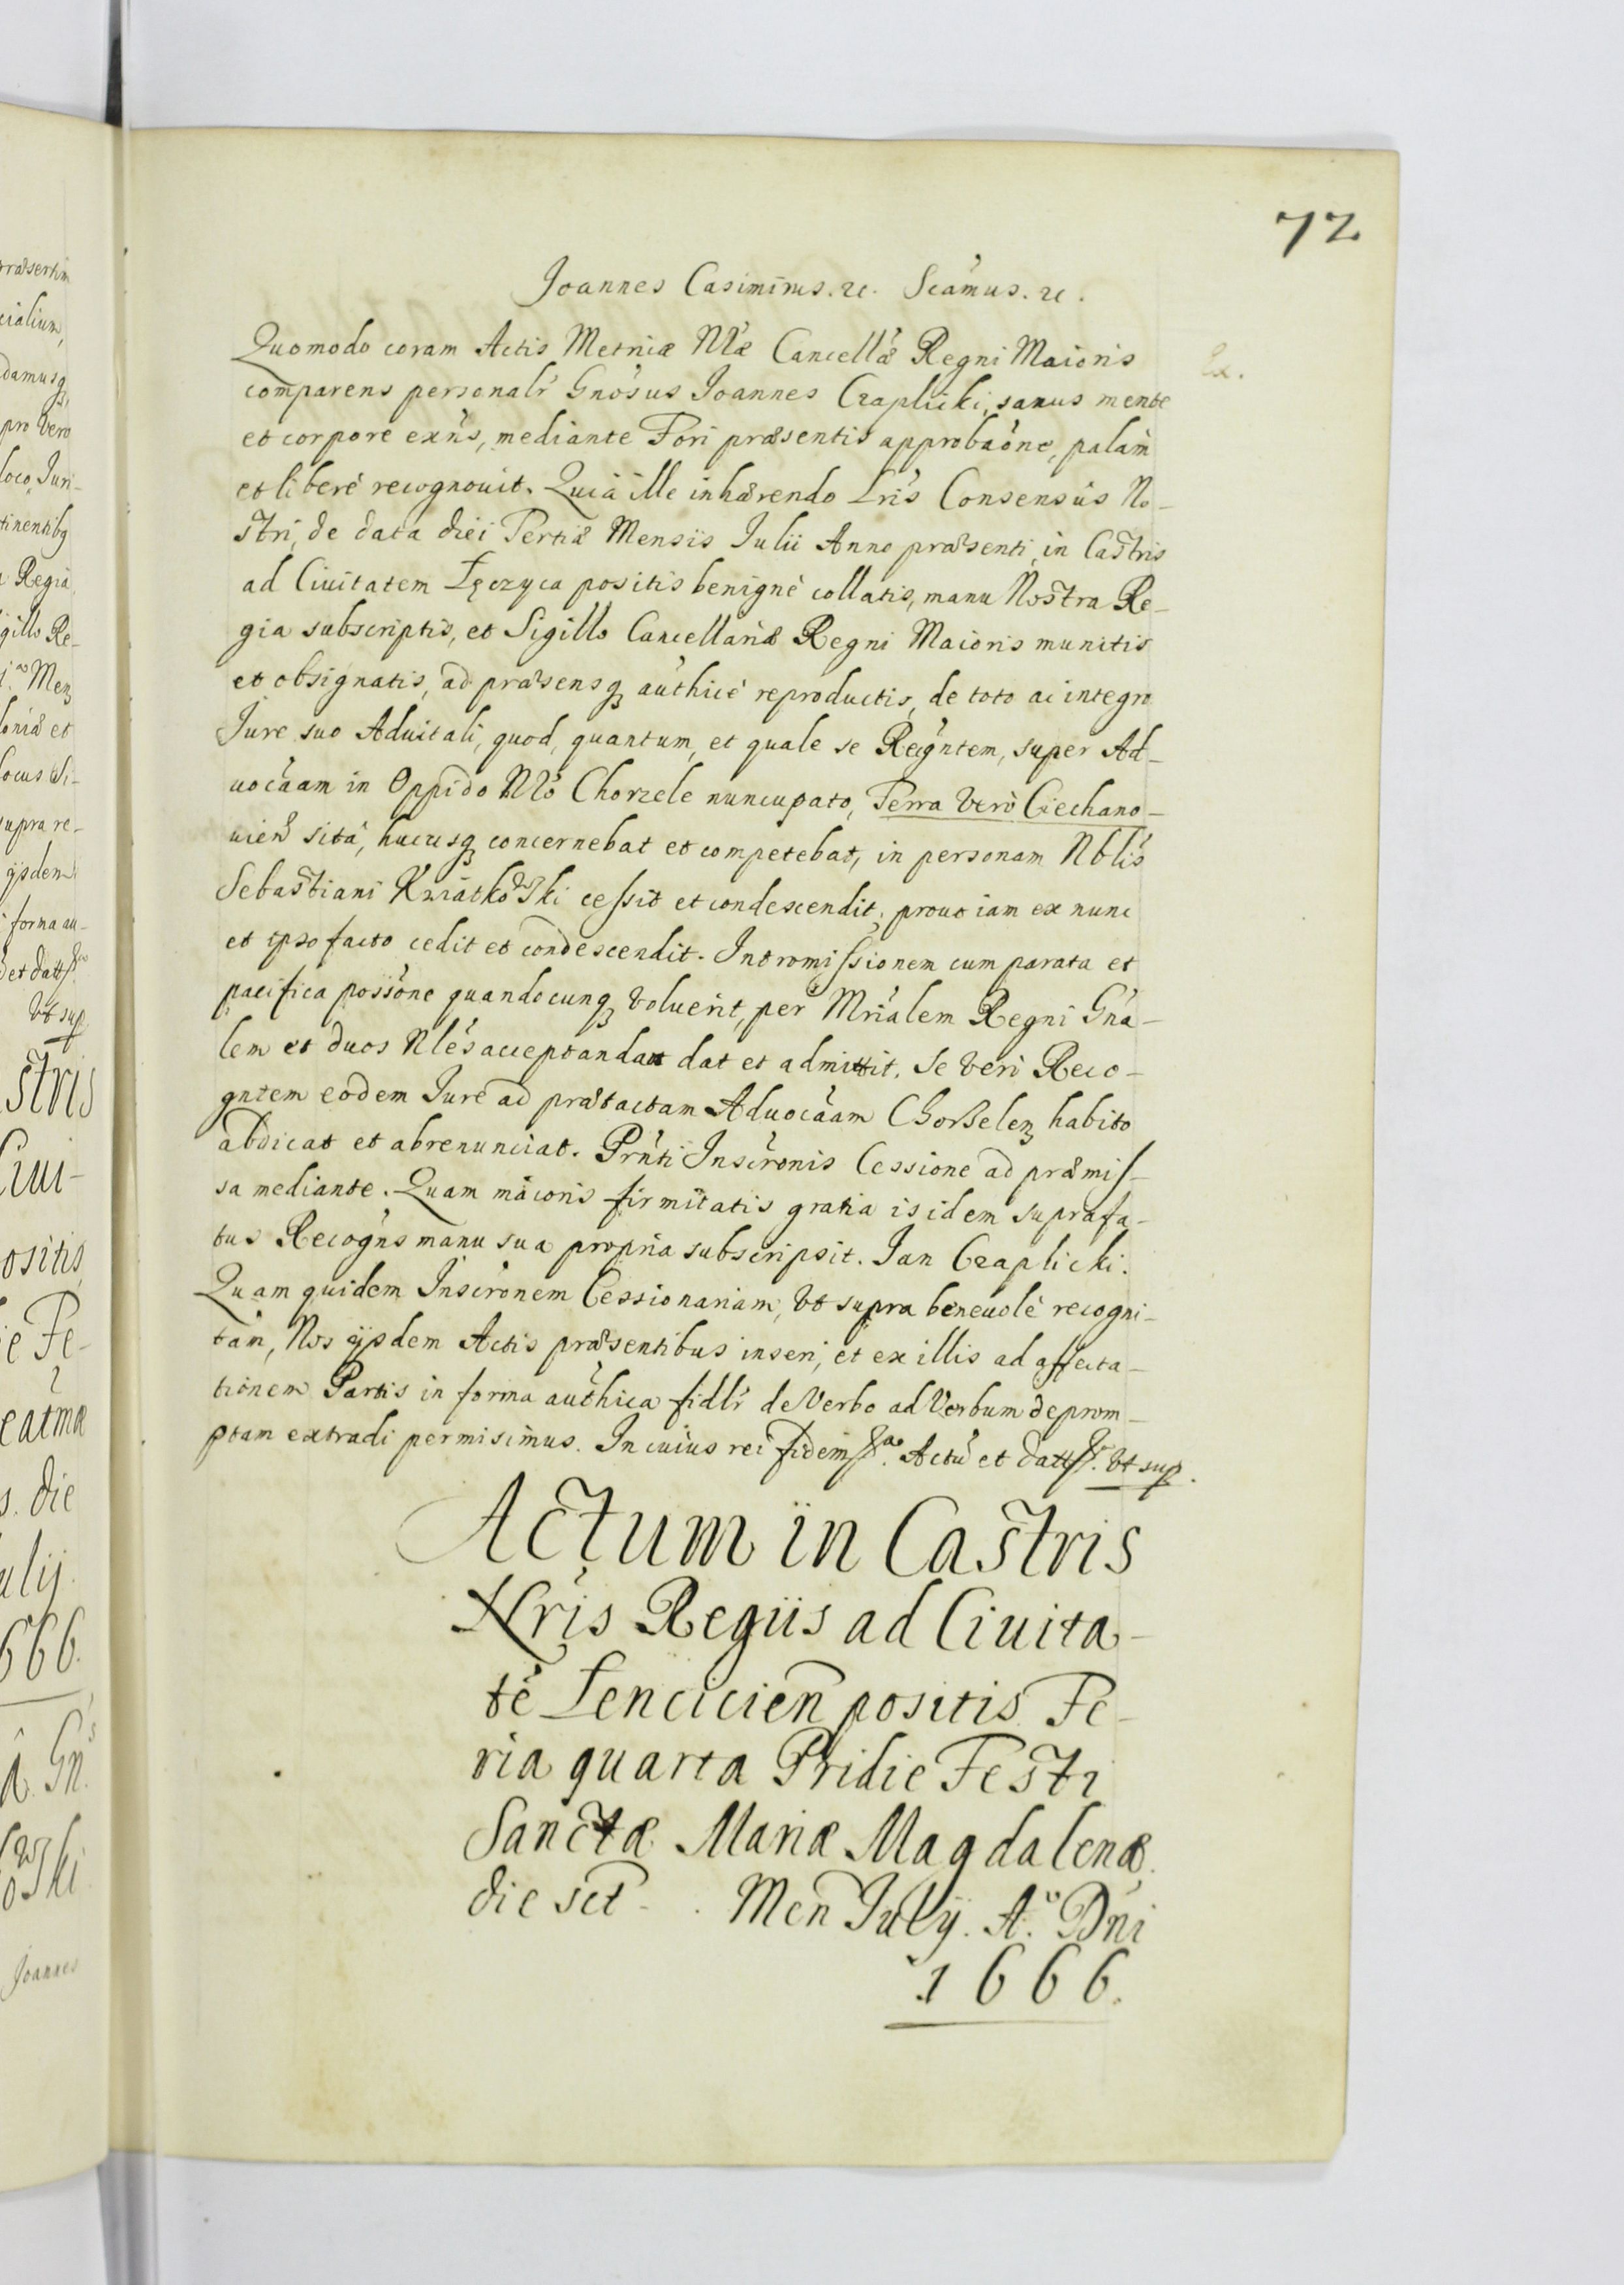 72
Joannes Casimirus. &c. Scamus. &c.
Quomodo coram Actis Metricæ Nræ Cancellæ Regni Maioris
comparens personalr Gnosus Joannes Czaplicki, sanus mente
et corpore exns, mediante Fori præsentis approbaone, palam
et liberè recognouit. Quia ille inhærendo Lris Consensûs No-
stri, de data diei Tertiæ Mensis Julii Anno præsenti, in Castris
ad Ciuitatem Łęczyca positis benignè collatis, manu Nostra Re-
gia subscriptis, et Sigillo Cancellariæ Regni Maioris munitis
et obsignatis, ad præsensq authicè reproductis, de toto ac integro
Jure suo Aduitali, quod, quantum, et quale se Recgntem, super Ad-
uocaam in Oppido Nro Chorzele nuncupato, Terra verò Ciechano-
uien sitâ, hucusq concernebat et competebat, in personam Nblis
Sebastiani Kwiatkowski cessit et condescendit, prout iam ex nunc
et ipso facto cedit et condescendit. Intromissionem cum parata et
pacifica possone quandocunq voluerit, per Mrialem Regni Gna-
lem et duos Nles acceptandam dat et admittit. Se veri Reco-
gntem eodem Jure ad prætactam Aduocaam Chorzelen habito
abdicat et abrenunciat. Prnti Inscronis Cessione ad præmis-
sa mediante. Quam maioris firmitatis gratia is idem suprafa-
tus Recogns manu sua propria subscripsit. Jan Czaplicki.
Quam quidem Inscronem Cessionariam, vt supra beneuolè recogni-
tam, Nos ijsdem Actis præsentibus inseri, et ex illis ad affecta-
tionem Partis in forma authica fidlr de Verbo ad Verbum deprom-
ptam extradi permisimus. In cuius rei fidem Actu et datt vt sup.
Actum in Castris
Nris Regiis ad Ciuita-
te Lencicien positis Fe-
ria quarta Pridie Festi
Sanctæ Mariæ Magdalenæ.
die sct. Men Julij. A.º Dni
1666.